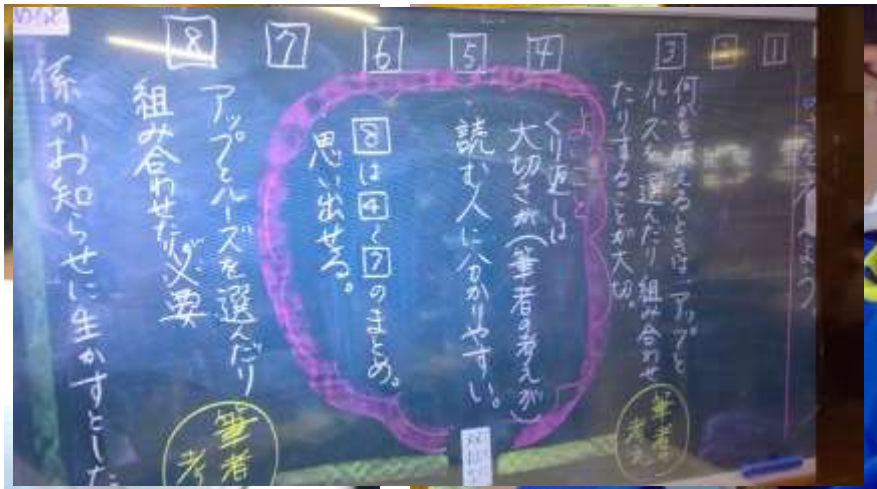 1
2
3
何かを伝えるときは、アップと
ルーズを選んだり組み合わせ
たりすることが大切。
筆者の
考え
4
5
6
7
8
よいこと
くり返しは
大切さが(筆者の考えが)
読む人に分かりやすい。
8は4〜7のまとめ。
思い出せる。
アップとルーズを選んだり
組み合わせたり必要
筆者
考
係のお知らせに生かすとした